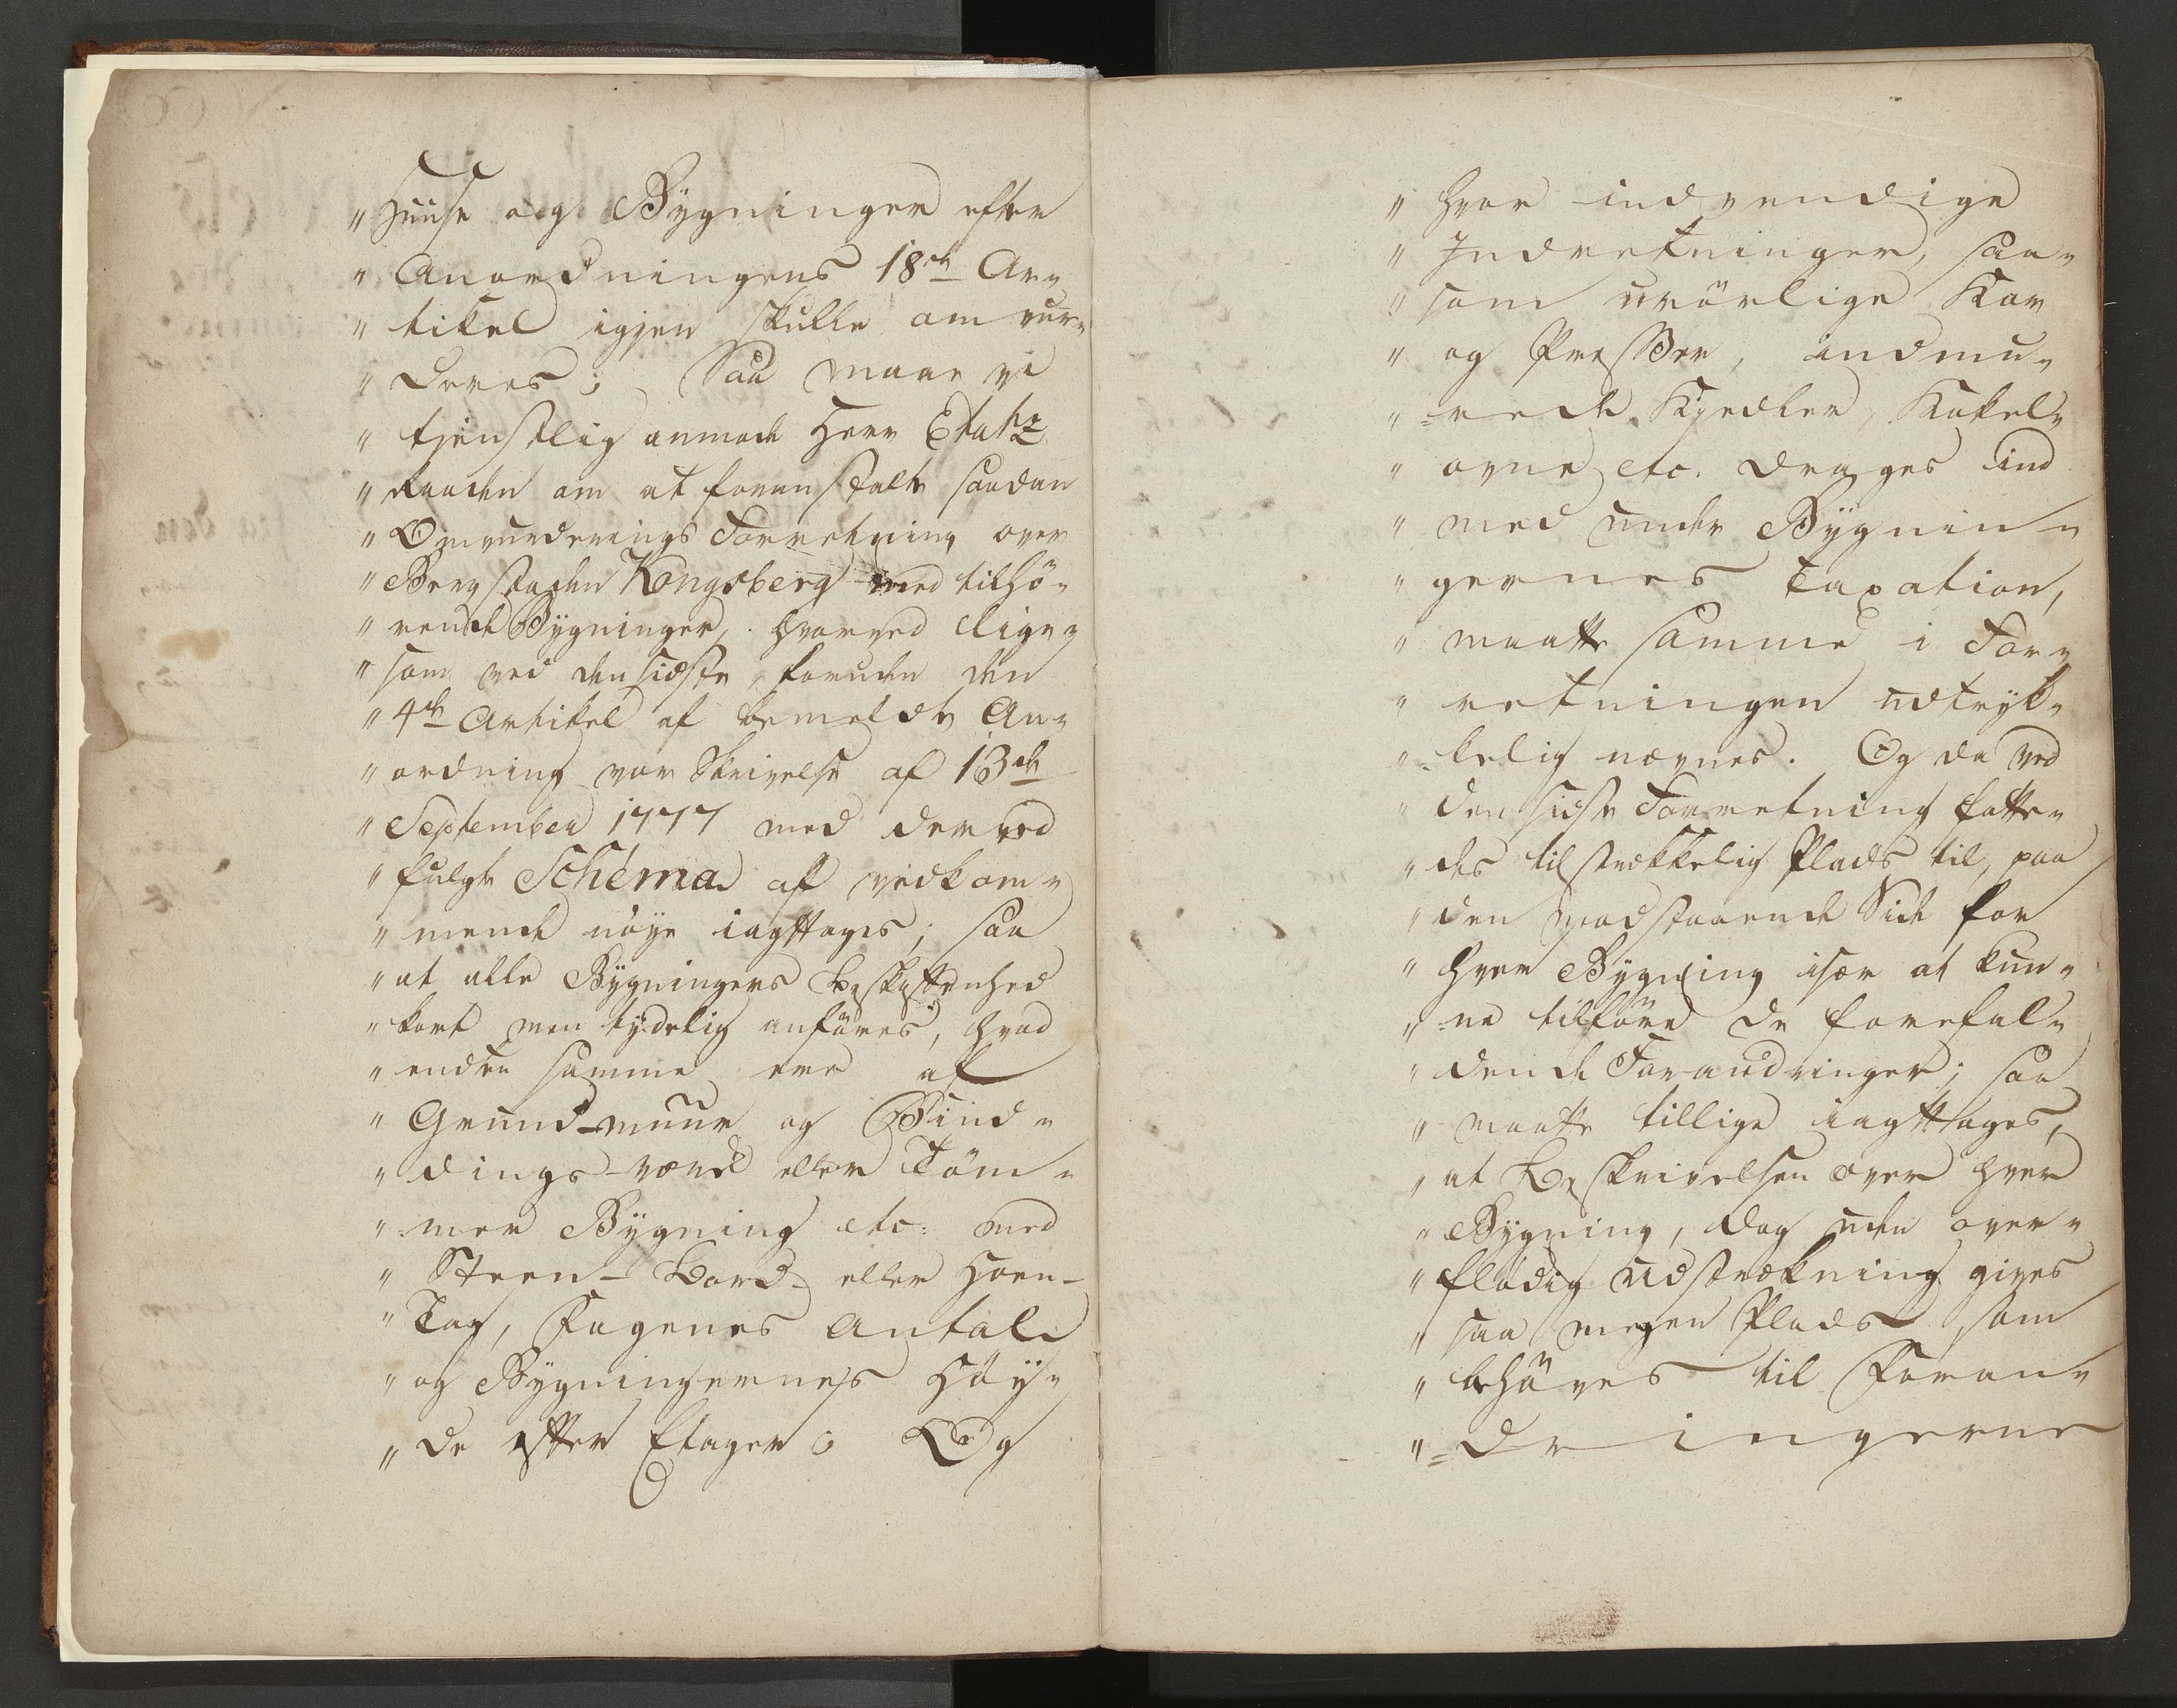 „ Huuse og Bygninger efter
„ Anordningens 18de Ar„
„ tikel igjen skulle omvur„
„ deres; Saa maae vi
„ tienstlig anmode Herr Etatz
„ Raaden om at foranstalte saadan
„ Omvurderings Forretning over
„ Bergstaden Kongsberg med tilhö„
„ rende Bygninger, hvorved lige„
„ som ved den sidste, foruden den
„ 4de Artikel af bemeldte An„
„ ordning vor Skrivelse af 13de
„ September 1777 med derved
„ fulgte Schéma af vedkom„
„ mende nöye iagttages; saa
„ at alle Bygningers Beskaffenhed
„ kort men tydelig anföres, hvad
„ enten samme ere af
„ Grund-muur og Bind„
„ dings-værk eller Töm„
„ mer Bygning etc: med
„ Steen- Bord- eller Horn-
„ Tag, Fagenes Antal
„ og Bygningernes Höy„
„ de efter Etager; Og
„ hvor indvendige
„ Indretninger, saa„
„ som urörlige Kar
„ og Presser, indmu„
„ =rede Kjedler, Kakel„
„ ovne etc. drages ind
„ med under Bygnin„
„ gernes Taxation,
„ maatte samme i For„
„ retningen udtryk„
„ kelig nævnes. Og da ved
„ den sidste Forretning fatte„
„ des tilstrækkelig Plads til, paa
„ den modstaaende Side for
„ hver Bygning især at kun„
„ ne tilföre de forefal„
„ dende Forandringer; saa
„ maatte tillige iagttages,
„ at Beskrivelsen over hver
„ Bygning, dog uden over„
„ flödig Udstrækning gives
„ saa megen Plads som
„ behöves til Foran„
„ =dringerne